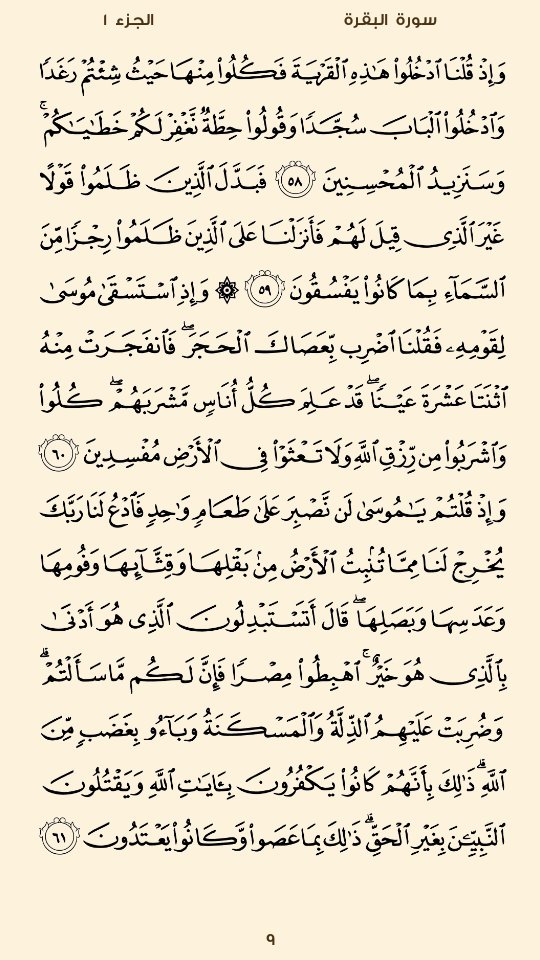 سورة البقرة الجزء ١
وَإِذْ قُلْنَا ٱدْخُلُوا۟ هَـٰذِهِ ٱلْقَرْيَةَ فَكُلُوا۟ مِنْهَا حَيْثُ شِئْتُمْ رَغَدًا
وَٱدْخُلُوا۟ ٱلْبَابَ سُجَّدًا وَقُولُوا۟ حِطَّةٌ نَّغْفِرْ لَكُمْ خَطَـٰيَـٰكُمْ ۚ
وَسَنَزِيدُ ٱلْمُحْسِنِينَ ٥٨ فَبَدَّلَ ٱلَّذِينَ ظَلَمُوا۟ قَوْلًا
غَيْرَ ٱلَّذِى قِيلَ لَهُمْ فَأَنزَلْنَا عَلَى ٱلَّذِينَ ظَلَمُوا۟ رِجْزًا مِّنَ
ٱلسَّمَآءِ بِمَا كَانُوا۟ يَفْسُقُونَ ٥٩ ۞ وَإِذِ ٱسْتَسْقَىٰ مُوسَىٰ
لِقَوْمِهِۦ فَقُلْنَا ٱضْرِب بِّعَصَاكَ ٱلْحَجَرَ ۖ فَٱنفَجَرَتْ مِنْهُ
ٱثْنَتَا عَشْرَةَ عَيْنًا ۖ قَدْ عَلِمَ كُلُّ أُنَاسٍ مَّشْرَبَهُمْ ۖ كُلُوا۟
وَٱشْرَبُوا۟ مِن رِّزْقِ ٱللَّهِ وَلَا تَعْثَوْا۟ فِى ٱلْأَرْضِ مُفْسِدِينَ ٦٠
وَإِذْ قُلْتُمْ يَـٰمُوسَىٰ لَن نَّصْبِرَ عَلَىٰ طَعَامٍ وَٰحِدٍ فَٱدْعُ لَنَا رَبَّكَ
يُخْرِجْ لَنَا مِمَّا تُنۢبِتُ ٱلْأَرْضُ مِنۢ بَقْلِهَا وَقِثَّآئِهَا وَفُومِهَا
وَعَدَسِهَا وَبَصَلِهَا ۖ قَالَ أَتَسْتَبْدِلُونَ ٱلَّذِى هُوَ أَدْنَىٰ
بِٱلَّذِى هُوَ خَيْرٌ ۚ ٱهْبِطُوا۟ مِصْرًا فَإِنَّ لَكُم مَّا سَأَلْتُمْ ۗ
وَضُرِبَتْ عَلَيْهِمُ ٱلذِّلَّةُ وَٱلْمَسْكَنَةُ وَبَآءُو بِغَضَبٍ مِّنَ
ٱللَّهِ ۗ ذَٰلِكَ بِأَنَّهُمْ كَانُوا۟ يَكْفُرُونَ بِـَٔايَـٰتِ ٱللَّهِ وَيَقْتُلُونَ
ٱلنَّبِيِّـۧنَ بِغَيْرِ ٱلْحَقِّ ۗ ذَٰلِكَ بِمَا عَصَوا۟ وَّكَانُوا۟ يَعْتَدُونَ ٦١
٩